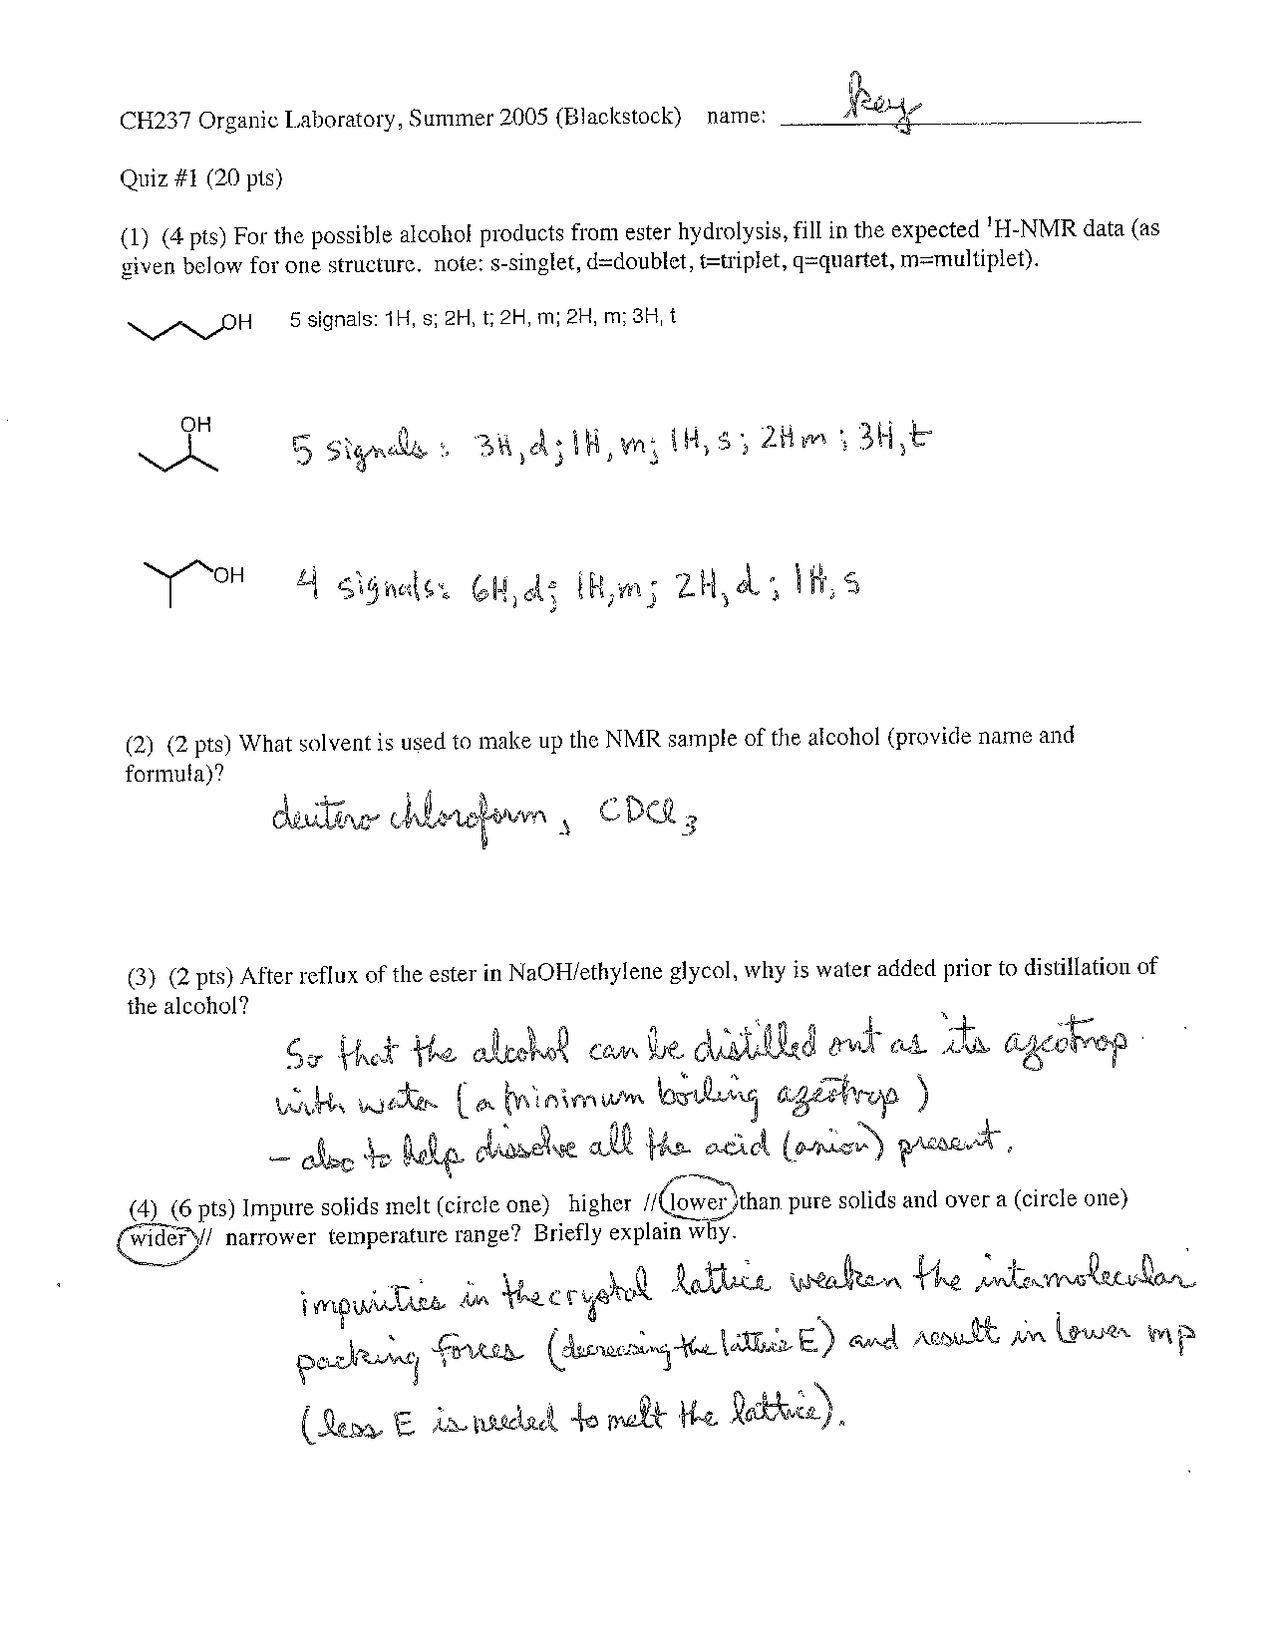 CH237 Organic Laboratory, Summer 2005 (Blackstock) name: key
Quiz #1 (20 pts)
(1) (4 pts) For the possible alcohol products from ester hydrolysis, fill in the expected ¹H-NMR data (as
given below for one structure. note: s-singlet, d=doublet, t=triplet, q=quartet, m=multiplet).
OH 5 signals: 1H, s; 2H, t; 2H, m; 2H, m; 3H, t
OH
5 signals: 3H, d; 1H, m; 1H, s; 2H m; 3H, t
OH 4 signals: 6H, d; 1H, m; 2H, d; 1H, s
(2) (2 pts) What solvent is used to make up the NMR sample of the alcohol (provide name and
formula)?
deutero chloroform, CDCl₃
(3) (2 pts) After reflux of the ester in NaOH/ethylene glycol, why is water added prior to distillation of
the alcohol?
So that the alcohol can be distilled out as its azeotrop
with water (a minimum boiling azeotrop)
- also to help dissolve all the acid (anion) present.
(4) (6 pts) Impure solids melt (circle one) higher // lower than pure solids and over a (circle one)
wider // narrower temperature range? Briefly explain why.
impurities in the crystal lattice weaken the intermolecular
packing forces (decreasing the lattice E) and result in lower mp
(less E is needed to melt the lattice).